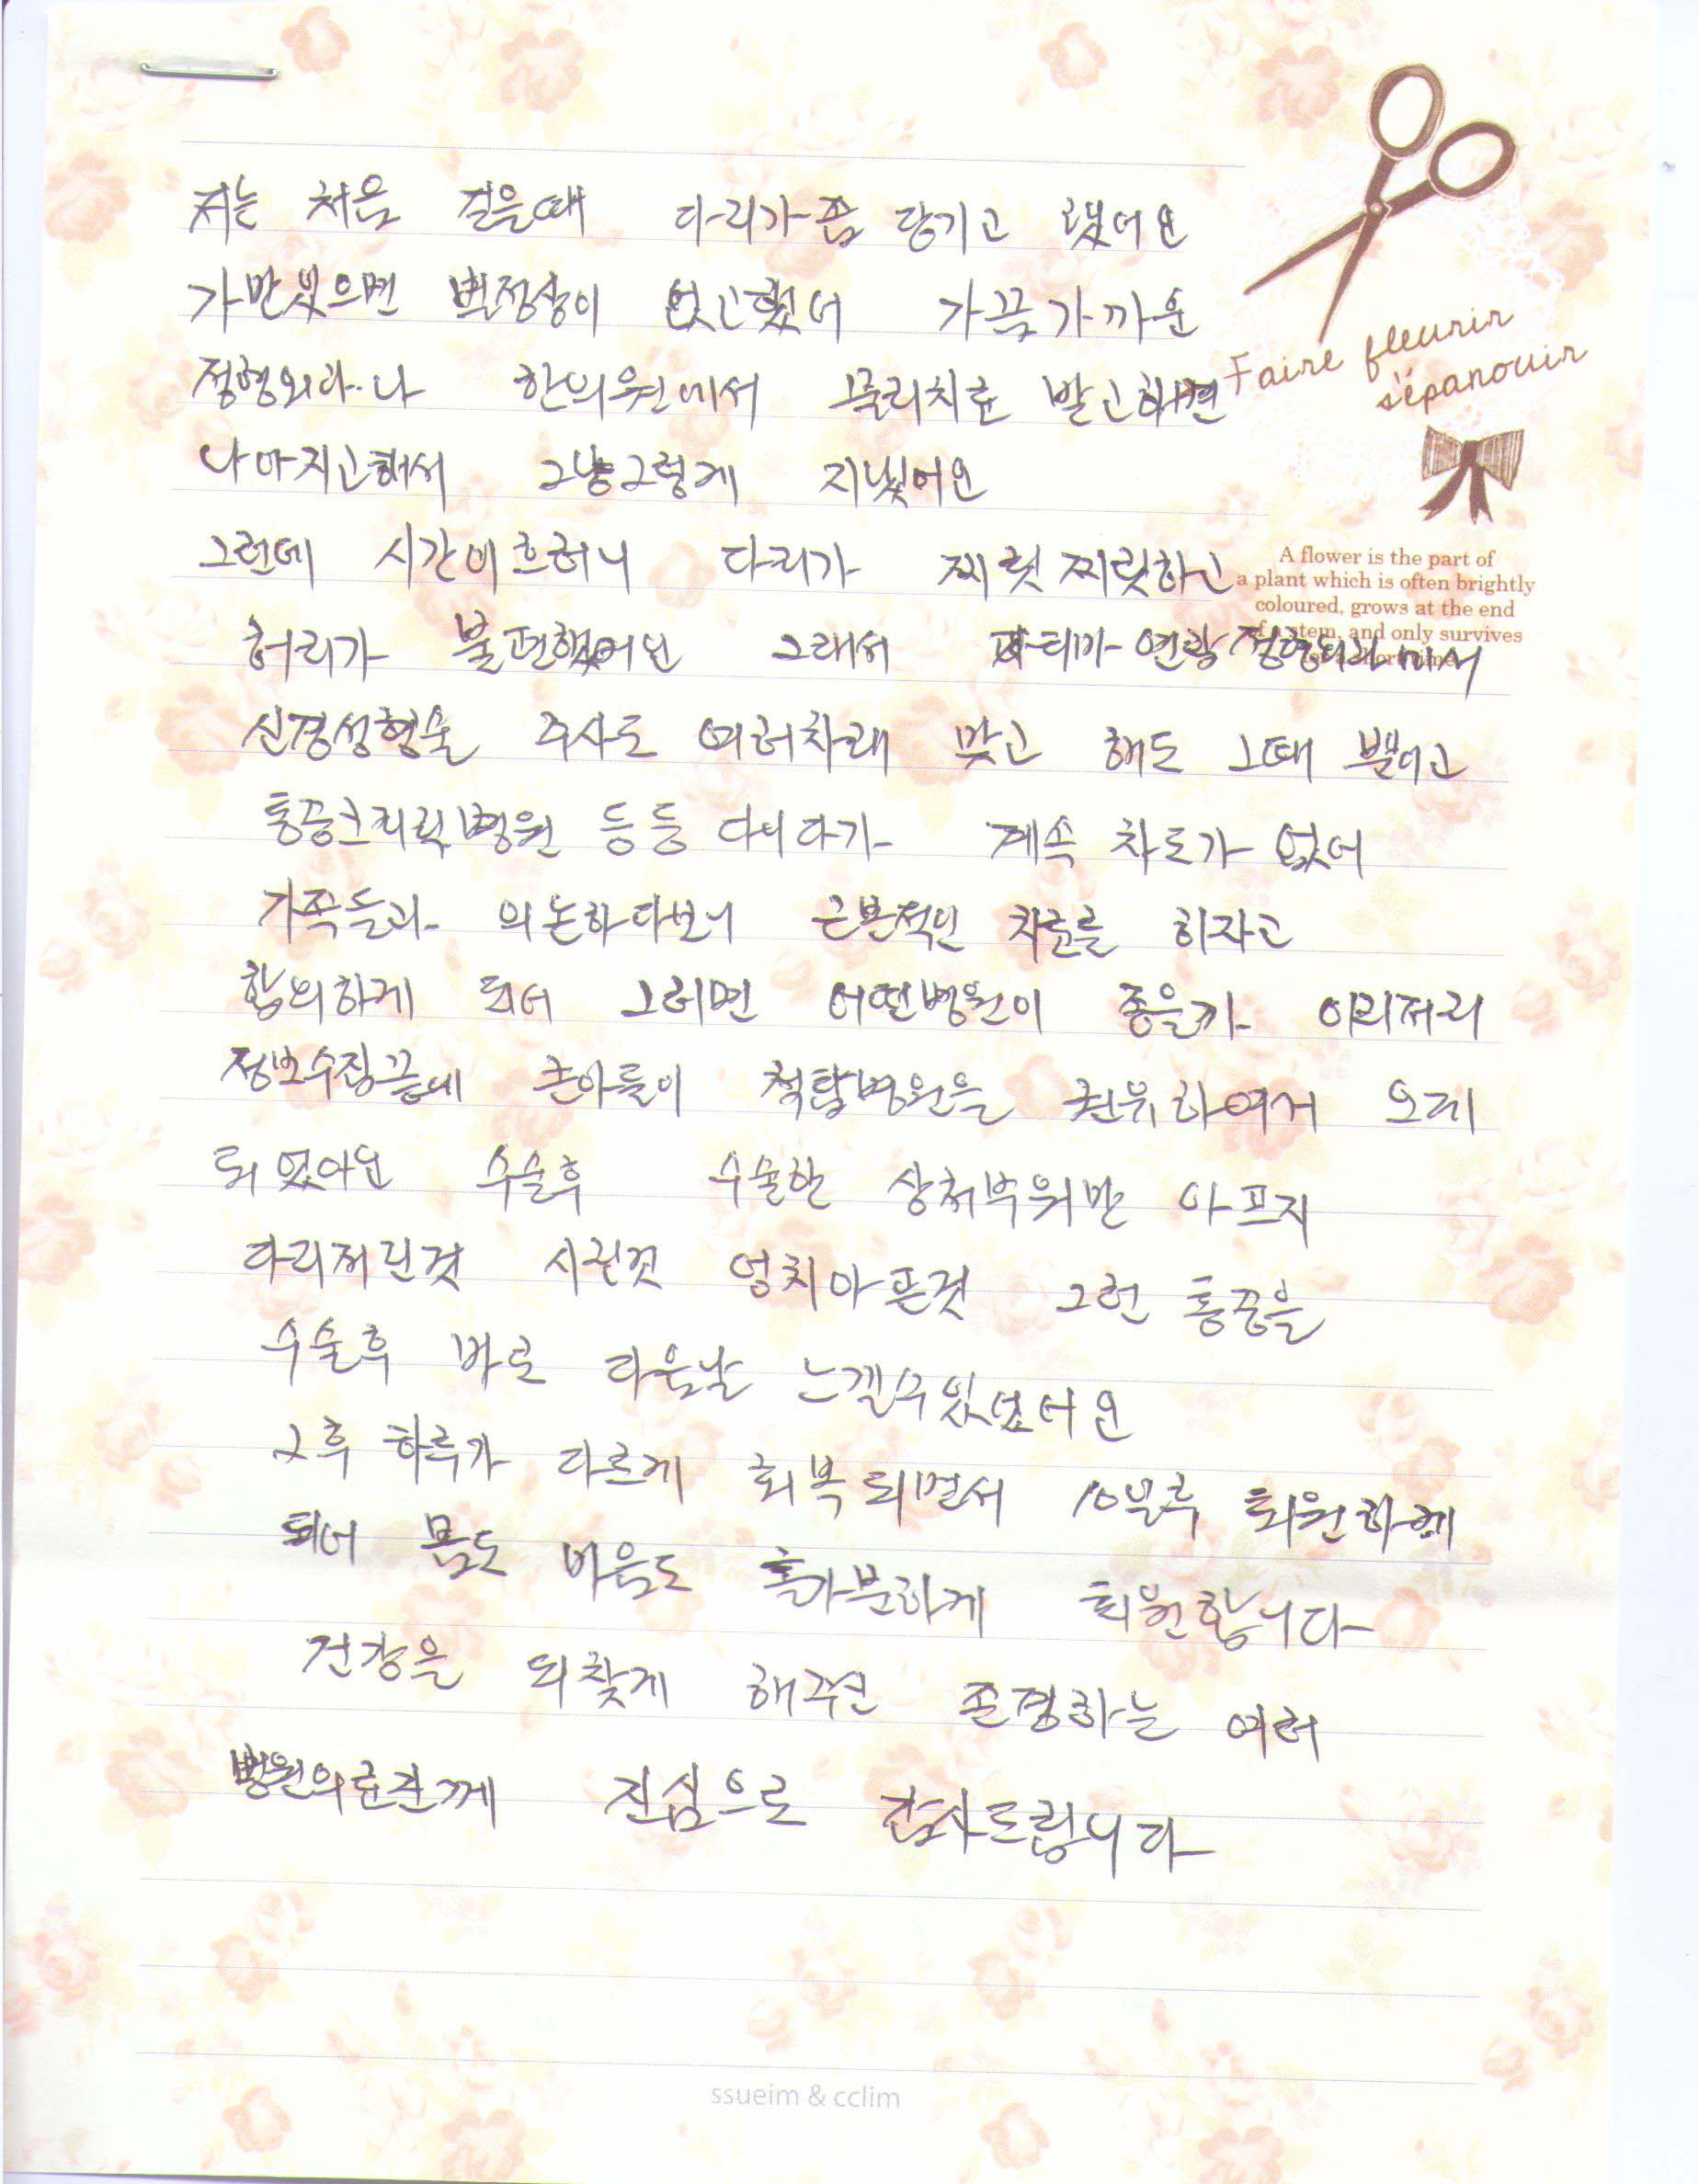 저는 처음 걸을때 다리가좀 당기고 했어요
가만있으면 별정상이 없고했어 가끔가까운
정형외과나 한의원에서 물리치료 받고하면
Faire fleurir
s'épanouir
나아지곤해서 그냥그렇게 지냈어요
그런데 시간이흐르니 다리가 찌릿찌릿하고
A flower is the part of
a plant which is often brightly
coloured, grows at the end
stem, and only survives
허리가 불편했어요 그래서 정형외과에서
신경성형술 주사도 여러차례 맞고 해도 그때 뿐이고
통증크리닉병원 등등 다니다가 계속 차도가 없어
가족들과 의논하다보니 근본적인 치료를 하자고
합의하게 되어 그러면 어떤병원이 좋을까 이리저리
정보수집끝에 큰아들이 척탑병원을 권유하여서 오게
되었어요 수술후 수술한 상처부위만 아프지
다리저린것 시린것 엉치아픈것 그런 통증을
수술후 바로 다음날 느낄수있었어요
그후 하루가 다르게 회복되면서 10일후 퇴원하게
되어 몸도 마음도 홀가분하게 퇴원합니다
건강을 되찾게 해주신 존경하는 여러
병원의료진께 진심으로 감사드립니다
ssueim & cclim